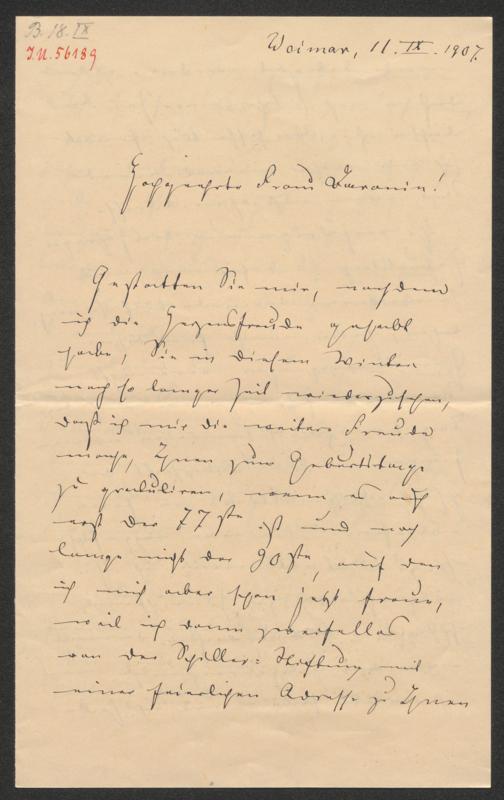 B. 18. IX
I.N. 56189
Weimar, 11. IX. 1907.
Hochgeehrte Frau Baronin!
Gestatten Sie mir, nachdem
ich die Herzensfreude gehabt
habe, Sie in diesem Winter
nach so langer Zeit wiederzusehen,
daß ich mir die weitere Freude
mache, Ihnen zum Geburtstage
zu gratuliren, wenn es auch
erst der 77ste ist und noch
lange nicht der 90ste, auf den
ich mich aber schon jetzt freue,
weil ich dann zweifellos
von der Schiller=Stiftung mit
einer feierlichen Adresse zu Ihnen